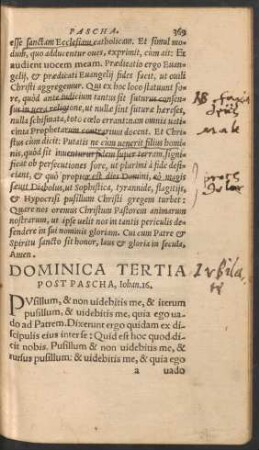 PASCHA. 369
esse sanctam Ecclesiam catholicam. Et simul mo
dum, quo adducentur oues, exprimit, cum ait: Et
audient uocem meam. Prædicatio ergo Euan-
gelij, & prædicati Euangelij fides facit, ut ouili
Christi aggregemur. Qui ex hoc loco statuunt fo-
re, quod ante iudicium tantus sit futurus consen-
sus in uera religione, ut nulla sint futuræ hæreses,
nulla schismata, toto cœlo errant: nam omnis uati-
cinia Prophetarum contrarium docent. Et Chri-
stus cum dicit: Putatis ne cum uenerit filius homi-
nis, quòd sit inuenturus fidem super terram, signi-
ficat ob persecutiones fore, ut plurimi à fide defi-
ciant, & quò propior est dies Domini, eò magis
sæuit Diabolus, ut Sophistica, tyrannide, flagitijs,
& Hypocrisi pusillum Christi gregem turbet:
Quare nos oremus Christum Pastorem animarum
nostrarum, ut ipse uelit nos in tantis periculis de-
fendere in sui nominis gloriam. Cui cum Patre &
Spiritu sancto sit honor, laus & gloria in secula,
Amen.
DOMINICA TERTIA
POST PASCHA, Iohan.16.
PVsillum, & non uidebitis me, & iterum
pusillum, & uidebitis me, quia ego ua-
do ad Patrem. Dixerunt ergo quidam ex di-
scipulis eius inter se: Quid est hoc quod di-
cit nobis. Pusillum & non uidebitis me, &
rursus pusillum: & uidebitis me, & quia ego
a uado